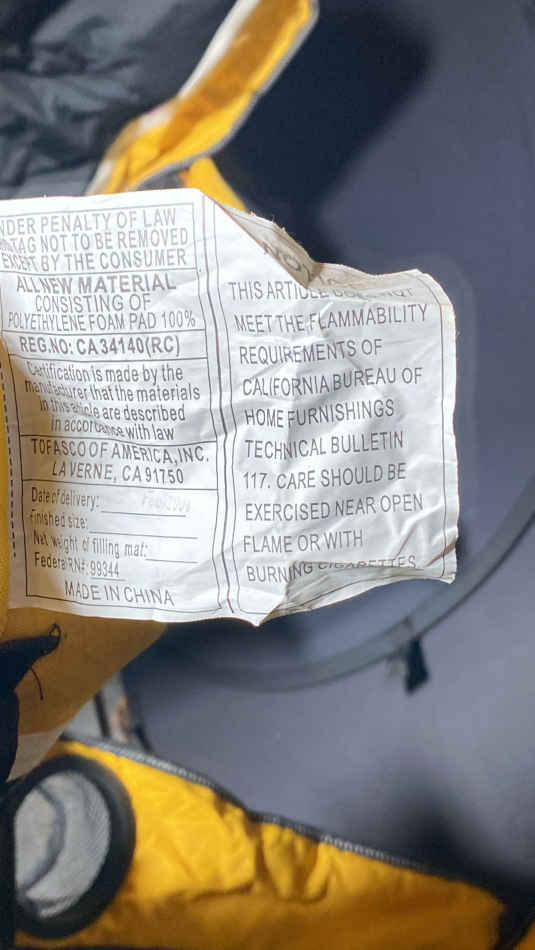 UNDER PENALTY OF LAW
TAG NOT TO BE REMOVED
EXCEPT BY THE CONSUMER
ALL NEW MATERIAL
CONSISTING OF
POLYETHYLENE FOAM PAD 100%
REG.NO: CA34140(RC)
Certification is made by the
manufacturer that the materials
in this article are described
in accordance with law
TOFASCO OF AMERICA, INC.
LA VERNE, CA 91750
Date of delivery:
Finished size:
Net weight of filling mat:
Federal RN#: 99344
MADE IN CHINA
THIS ARTICLE DOES NOT
MEET THE FLAMMABILITY
REQUIREMENTS OF
CALIFORNIA BUREAU OF
HOME FURNISHINGS
TECHNICAL BULLETIN
117. CARE SHOULD BE
EXERCISED NEAR OPEN
FLAME OR WITH
BURNING CIGARETTES